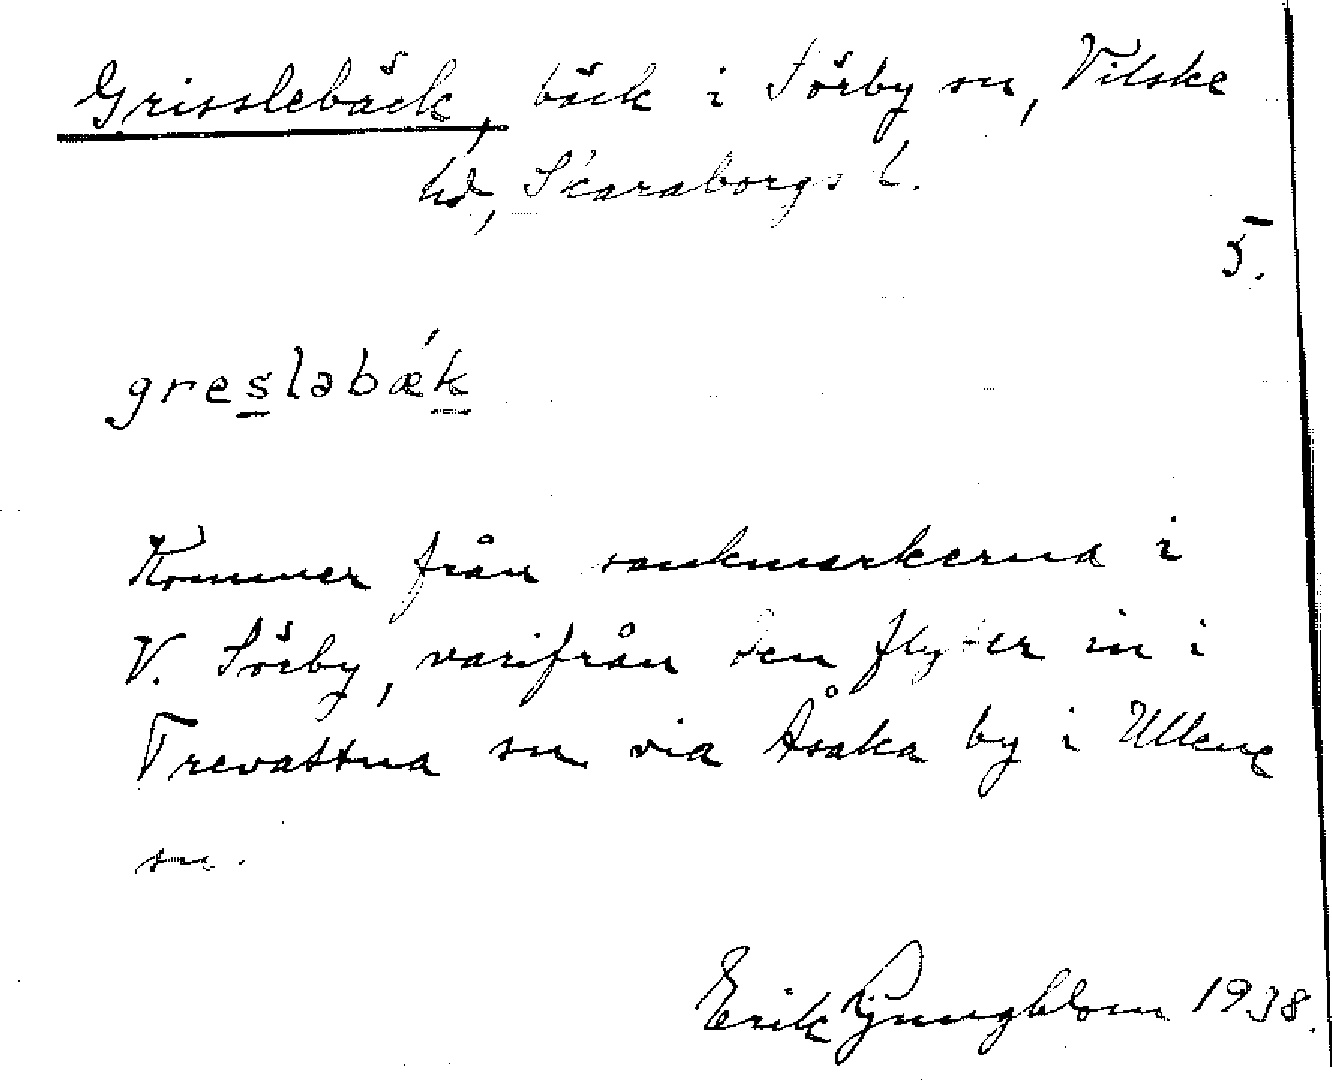 Grisslebäck, bäck i Sörby sn, Vilske
hd, Skaraborgs l.
5.
greslabæ´k
Kommer från sankmarkerna i
V. Sörby, varifrån den flyter in i
Trevattna sn via Åsaka by i Ullene
sn.
Erik Ljungblom 1938.